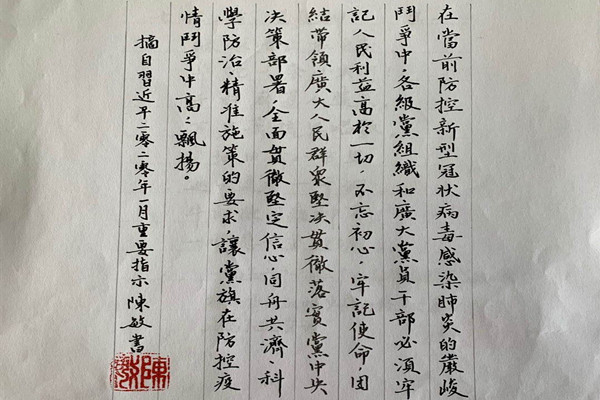 在當前防控新型冠狀病毒感染肺炎的嚴峻
鬥爭中,各級黨組織和廣大黨員干部必須牢
記人民利益高於一切,不忘初心,牢記使命,团
結帶領廣大人民群眾堅决貫徹落實黨中央
决策部署,全面貫徹堅定信心,同舟共濟、科
學防治、精准施策的要求,讓黨旗在防控疫
情鬥爭中高〻飄揚。
摘自習近平二零二零年一月重要指示 陳敏書